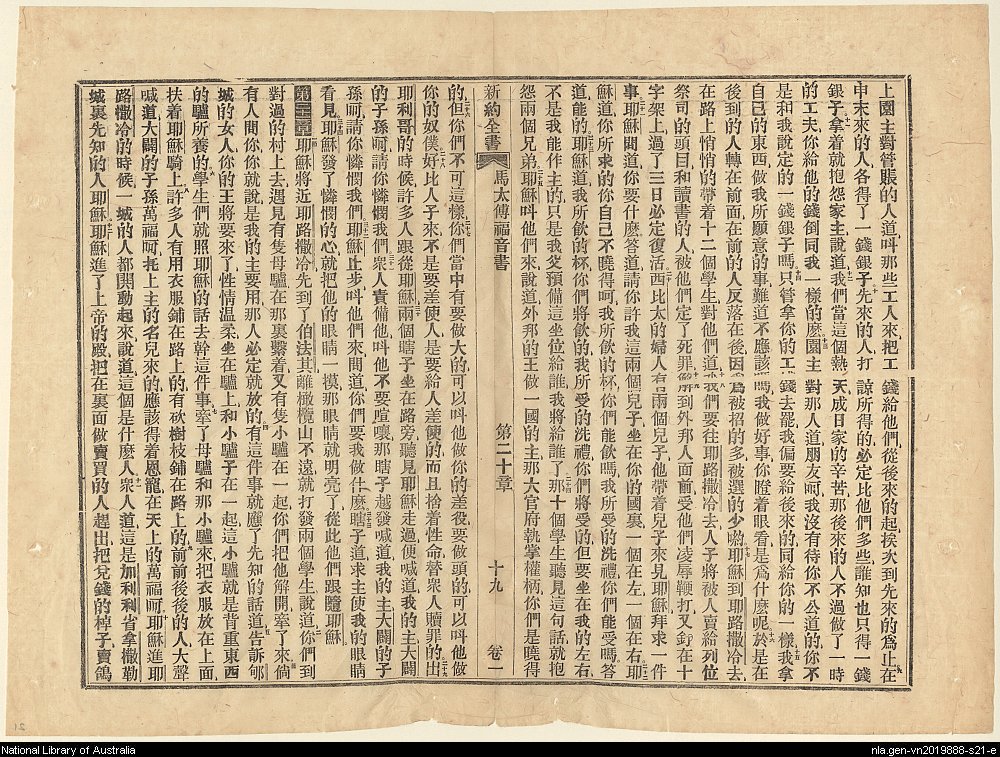 上園主對管賬的人道叫那些工人來把工錢給他們從後來的起挨次到先來的爲止在
申末來的人各得了一錢銀子先來的人打諒所得的必定比他們多些誰知也只得一錢
銀子拿着就抱怨家主說道我們當這個熱天成日家的辛苦那後來的人不過做了一時
的工夫你給他的錢倒同我一樣的麽園主對那人道朋友呵我沒有待你不公道的你不
是和我說定的一錢銀子嗎只管拿你的工錢去罷我偏要給後來的同給你的一樣我拿
自己的東西做我所願意的事難道不應該嗎我做好事你瞪着眼看是爲什麽呢於是在
後到的人轉在前面在前的人反落在後因爲被招的多被選的少嘞耶穌到耶路撒冷去
在路上悄悄的帶着十二個學生對他們道我們要往耶路撒冷去人子將被人賣給列位
祭司的頭目和讀書的人被他們定了死罪解到外邦人面前受他們凌辱鞭打又釘在十
字架上過了三日必定復活西比太的婦人有兩個兒子他帶着兒子來見耶穌拜求一件
事耶穌問道你要什麽答道請你許我這兩個兒子坐在你的國裏一個在左一個在右耶
穌道你所求的你自己不曉得呵我所飲的杯你們能飲嗎我所受的洗禮你們能受嗎答
道能的耶穌道我所飲的杯你們將飲的我所受的洗禮你們將受的但要坐在我的左右
不是我能作主的只是我父預備這坐位給誰我將給誰了那十個學生聽見這句話就抱
怨兩個兄弟耶穌叫他們來說道外邦的王做一國的主那大官府執掌權柄你們是曉得
新約全書 馬太傳福音書 第二十章 十九 卷一
的但你們不可這樣你們當中有要做大的可以叫他做你的差役要做頭的可以叫他做
你的奴僕好比人子來不是要差使人是要給人差使的而且捨着性命替衆人贖罪的出
耶利哥的時候許多人跟從耶穌兩個瞎子坐在路旁聽見耶穌走過便喊道我的主大闢
的子孫呵請你憐憫我們衆人責備他叫他不要喧嚷那瞎子越發喊道我的主大闢的子
孫呵請你憐憫我們耶穌止步叫他們來問道你們要我做什麽瞎子道求主使我的眼睛
看見耶穌發了憐憫的心就把他的眼睛一摸那眼睛就明亮了從此他們跟隨耶穌
第二十一章耶穌將近耶路撒冷先到了伯法其離橄欖山不遠就打發兩個學生說道你們到
對過的村上去遇見有隻母驢在那裏繫着又有隻小驢在一起你們把他解開牽了來倘
有人問你你就說是我的主要用那人必定就放的有這件事就應了先知的話道告訴郇
城的女人你的王將要來了性情溫柔坐在驢上和小驢子在一起這小驢就是背重東西
的驢所養的學生們就照耶穌的話去幹這件事牽了母驢和那小驢來把衣服放在上面
扶着耶穌騎上許多人有用衣服鋪在路上的有砍樹枝鋪在路上的前前後後的人大聲
喊道大闢的子孫萬福呵托上主的名兒來的應該得着恩寵在天上的萬福呵耶穌進耶
路撒冷的時候一城的人都開動起來說道這個是什麽人衆人道這是加利利省拿撒勒
城裏先知的人耶穌耶穌進了上帝的殿把在裏面做賣買的人趕出把兌錢的棹子賣鴿
National Library of Australia
nla.gen-vn2019888-s21-e